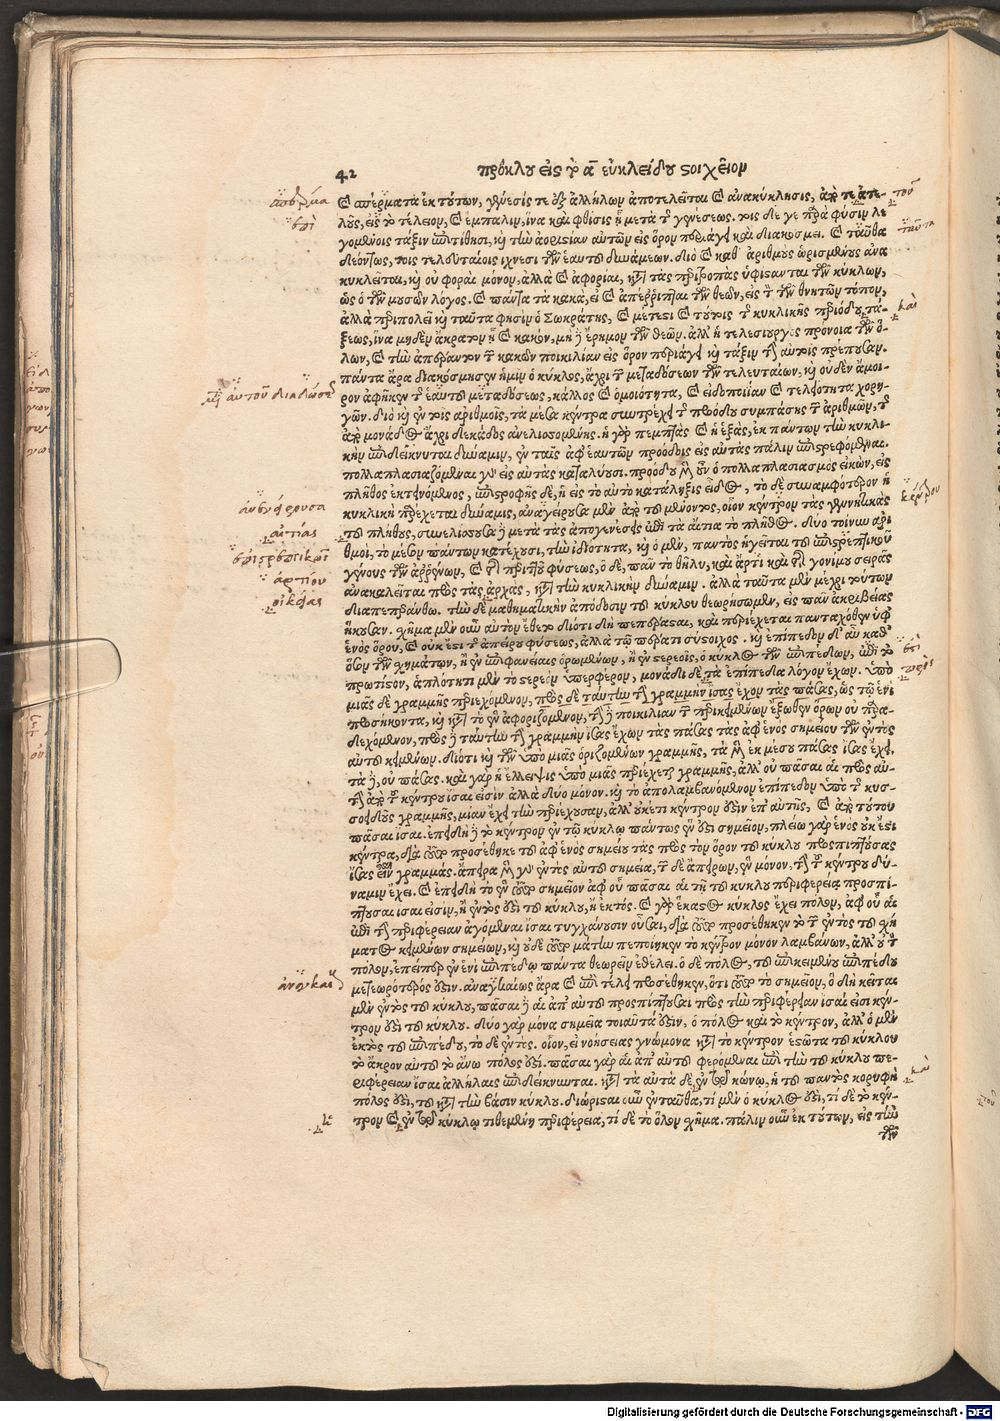 42 πρόκλου εἰς τὸ α̅ εὐκλείδου στοιχεῖον
καὶ σπέρματα ἐκ τούτων, γένεσίς τε ἐξ ἀλλήλων ἀποτελεῖται καὶ ἀνακύκλησις, ἀπὸ τε ἀτε-
λοῦς, εἰς τὸ τέλειον, καὶ ἔμπαλιν, ἵνα καὶ φθίσις ᾖ μετὰ τ γενέσεως. τοῖς δέ γε παρὰ φύσιν λε
γομένοις τάξιν ἐπιτίθησι, καὶ τὴν ἀοριστίαν αὐτῶν εἰς ὅρον περιάγει καὶ διακοσμεῖ. καὶ ταῦθα
δεόντως, τοῖς τελευταίοις ἴχνεσι τῶν ἑαυτοῦ δυνάμεων. διὸ καὶ καθ' ἀριθμοὺς ὡρισμένους ἀνα
κυκλεῖται, καὶ οὐ φοραὶ μόνον, ἀλλὰ καὶ ἀφορίαι, κατὰ τὰς περιτροπὰς ὑφίστανται τῶν κύκλων,
ὡς ὁ τῶν μουσῶν λόγος. καὶ πάντα τὰ κακὰ, εἰ καὶ ἀπέρριπται τῶν θεῶν, εἰς τὸν τῶν θνητῶν τόπον,
ἀλλὰ περιπολεῖ καὶ ταῦτα φησὶν ὁ Σωκράτης, καὶ μέτεστι καὶ τούτοις τ κυκλικῆς περιόδου τά-
ξεως, ἵνα μηδὲν ἄκρατον ᾖ καὶ κακὸν, μὴ δὲ ἔρημον τῶν θεῶν. ἀλλ' ἡ τελεσιουργὸς πρόνοια τῶν ὅ-
λων, καὶ τὴν ἀπέραντον τ κακῶν ποικιλίαν εἰς ὅρον περιάγει καὶ τάξιν τὴν αὐτοῖς πρέπουσαν.
πάντα ἄρα διακόσμησεν ἡμῖν ὁ κύκλος, ἄχρι τ μεταδόσεων τῶν τελευταίων, καὶ οὐδὲν ἄμοι-
ρον ἀφῆκεν τ ἑαυτοῦ μεταδόσεως, κάλλος καὶ ὁμοιότητα, καὶ εἰδοποιΐαν καὶ τελειότητα χορη-
γῶν. διὸ καὶ ἐν τοῖς ἀριθμοῖς, τὰ μέσα κέντρα συντρέχει τ προόδου συμπάσης τ ἀριθμῶν, τ
ἀπὸ μονάδος ἄχρι δεκάδος ἀνελισσομένης. ἡ γὰρ πεμπτὰς καὶ ἡ ἑξὰς, ἐκ πάντων τὴν κυκλι-
κὴν ἐπιδείκνυται δύναμιν, ἐν ταῖς ἀφ' ἑαυτῶν προόδοις εἰς αὐτὰς πάλιν ἐπιστρεφόμεναι.
πολλαπλασιαζόμεναι γοῦν εἰς αὐτὰς καταλήγουσι. προόδου μὲν οὖν ὁ πολλαπλασιασμὸς εἰκὼν, εἰς
πλῆθος ἐκτεινόμενος, ἐπιστροφῆς δὲ, ἡ εἰς τὸ αὐτὸ κατάληξις εἶδος, τὸ δὲ συναμφότερον ἡ
κυκλικὴ παρέχεται δύναμις, ἀναγείρουσα μὲν ἀπὸ τοῦ μένοντος, οἷον κέντρον τὰς γεννητικὰς
τοῦ πλήθους, συνελίσσουσα δὲ μετὰ τὰς ἀπογενέσεις ἐπὶ τὰ αἴτια τὸ πλῆθος. δύο τοίνυν ἀρι
θμοὶ, τὸ μέσον πάντων κατέχουσι, τὴν ἰδιότητα, καὶ ὁ μὲν, παντὸς ἡγεῖται τοῦ ἐπιστρεπτικοῦ
γένους τῶν ἀρρένων, καὶ τ περιττοῦ φύσεως, ὁ δὲ, πᾶν τὸ θῆλυ, καὶ ἄρτι καὶ τ γονίμου σειρᾶς
ἀνακαλεῖται πρὸς τὰς ἀρχὰς, κατὰ τὴν κυκλικὴν δύναμιν. ἀλλὰ ταῦτα μὲν μέχρι τούτων
διαπεπεράνθω. τὴν δὲ μαθηματικὴν ἀπόδοσιν τοῦ κύκλου θεωρήσωμεν, εἰς πᾶν ἀκριβείας
ἥκουσαν. σχῆμα μὲν οὖν αὐτὸν ἔθετο διότι δὴ πεπέρασται, καὶ περιέχεται πανταχόθεν ὑφ'
ἑνὸς ὅρου, καὶ οὐκ ἔστι τ ἀπείρου φύσεως, ἀλλὰ τῷ πέρατι σύστοιχος. καὶ ἐπίπεδον δ' αὖ καθ'
ὅσον τῶν σχημάτων, ἢ ἐν ἐπιφανείαις ὁρωμένων, ἢ ἐν στερεοῖς, ὁ κύκλος τῶν ἐπιπέδων, ἐστὶ τὸ
πρώτιστον, ἁπλότητι μὲν τὸ στερεὸν ὑπερφέρον, μονάδι δὲ τὰ ἐπίπεδα λόγον ἔχων. ὑπὸ
μιᾶς δὲ γραμμῆς περιεχόμενον, πρὸς δὲ ταύτην τὴν γραμμὴν ἴσας ἔχον τὰς πάσας, ὡς τῷ ἑνὶ
προσήκοντα, καὶ κατὰ τὸ ἓν ἀφοριζόμενον, τ δὲ ποικιλίαν τ περικειμένων ἔξωθεν ὅρων οὐ πρα-
δεχόμενον, πρὸς δὲ ταύτην τὴν γραμμὴν ἴσας ἔχων τὰς πάσας τὰς ἀφ' ἑνὸς σημείου τῶν ἐντὸς
αὐτοῦ κειμένων. διότι καὶ τῶν ὑπὸ μιᾶς ὁριζομένων γραμμῆς, τὰ μὲν ἐκ μέσου πάσας ἴσας ἔχει,
τὰ δὲ, οὐ πάσας. καὶ γὰρ ἡ ἔλλειψις ὑπὸ μιᾶς περιέχεται γραμμῆς, ἀλλ' οὐ πᾶσαι αἱ πρὸς αὐ-
τὴν ἀπὸ τ κέντρου ἴσαι εἰσὶν ἀλλὰ δύο μόνον. καὶ τὸ ἀπολαμβανόμενον ἐπίπεδον ὑπὸ τ κισ-
σοειδοῦς γραμμῆς, μίαν ἔχει τὴν περιέχουσαν, ἀλλ' οὐκέτι κέντρον ἐστὶν ἐπ' αὐτῆς, καὶ ἀπὸ τούτου
πᾶσαι ἴσαι. ἐπειδὴ δὲ τὸ κέντρον ἐν τῷ κύκλῳ πάντως ἕν ἐστι σημεῖον, πλείω γὰρ ἑνὸς οὐκ ἔστι
κέντρα, διὰ τοῦτο προσέθηκε τὸ ἀφ' ἑνὸς σημείου τὰς πρὸς τὸν ὅρον τοῦ κύκλου προσπιπτούσας
ἴσας εἶναι γραμμάς. ἄπειρα μὲν γὰρ ἐντὸς αὐτοῦ σημεῖα, τ δὲ ἀπείρων, ἓν μόνον, τὴν τ κέντρου δύ-
ναμιν ἔχει. καὶ ἐπειδὴ τὸ ἓν τοῦτο σημεῖον ἀφ' οὗ πᾶσαι αἱ τῇ τοῦ κύκλου περιφερείᾳ προσπί-
πτουσαι ἴσαι εἰσιν, ἢ ἐντός ἐστι τοῦ κύκλου, ἢ ἐκτός. καὶ γὰρ ἕκαστος κύκλος ἔχει πόλον, ἀφ' οὗ αἱ
ἐπὶ τὴν περιφέρειαν ἀγόμεναι ἴσαι τυγχάνουσιν οὖσαι, διὰ τοῦτο προσέθηκεν τὸ τ ἐντὸς τοῦ σχή
ματος κειμένων σημείων, καὶ οὐδὲ τοῦτο μάτην πεποίηκεν τὸ κέντρον μόνον λαμβάνων, ἀλλ' οὐ τὸν
πόλον, ἐπείπερ ἐν ἑνὶ ἐπιπέδῳ πάντα θεωρεῖν ἐθέλει. ὁ δὲ πόλος, τοῦ ὑποκειμένου ἐπιπέδου
μετεωρότερός ἐστιν. ἀναγκαίως ἄρα ἐπὶ τέλει προσέθηκεν, ὅτι τοῦτο τὸ σημεῖον, ὃ δὴ κεῖται
μὲν ἐντὸς τοῦ κύκλου, πᾶσαι δὲ αἱ ἀπ' αὐτοῦ προσπίπτουσαι πρὸς τὴν περιφέρειαν ἴσαι εἰσὶ κέν-
τρον ἐστὶ τοῦ κύκλου. δύο γὰρ μόνα σημεῖα τοιαῦτά ἐστιν, ὁ πόλος καὶ τὸ κέντρον, ἀλλ' ὁ μὲν
ἐκτὸς τοῦ ἐπιπέδου, τὸ δὲ ἐντός. οἷον, εἰ νοήσειας γνώμονα κατὰ τὸ κέντρον ἑστῶτα τοῦ κύκλου
τὸ ἄκρον αὐτοῦ τὸ ἄνω πόλος ἐστί. πᾶσαι γὰρ αἱ ἀπ' αὐτοῦ φερόμεναι ἐπὶ τὴν τοῦ κύκλου πε-
ριφέρειαν ἴσαι ἀλλήλαις ἐπιδείκνυνται. κατὰ τὰ αὐτὰ δὲ ἐν τῷ κώνῳ, ἡ τοῦ παντὸς κορυφὴ
πόλος ἐστὶ, τοῦ κατὰ τὴν βάσιν κύκλου. διώρισται οὖν ἐνταῦθα, τί μὲν ὁ κύκλος ἐστὶ, τί δὲ τὸ κέν-
τρον καὶ ἐν τῷ κύκλῳ τιθεμένη περιφέρεια, τί δὲ τὸ ὅλον σχῆμα. πάλιν οὖν ἐκ τούτων, εἰς τὴν
τῶν
τοῦ
ταῦτα
καὶ
αὐτοῦ διαδόσε
κέντρου
ἀνεγείρουσα
αἰτίας
ἐπιστρεπτικοῦ
ἀρτίου
οἰκείας
καὶ
Digitalisierung gefördert durch die Deutsche Forschungsgemeinschaft - DFG